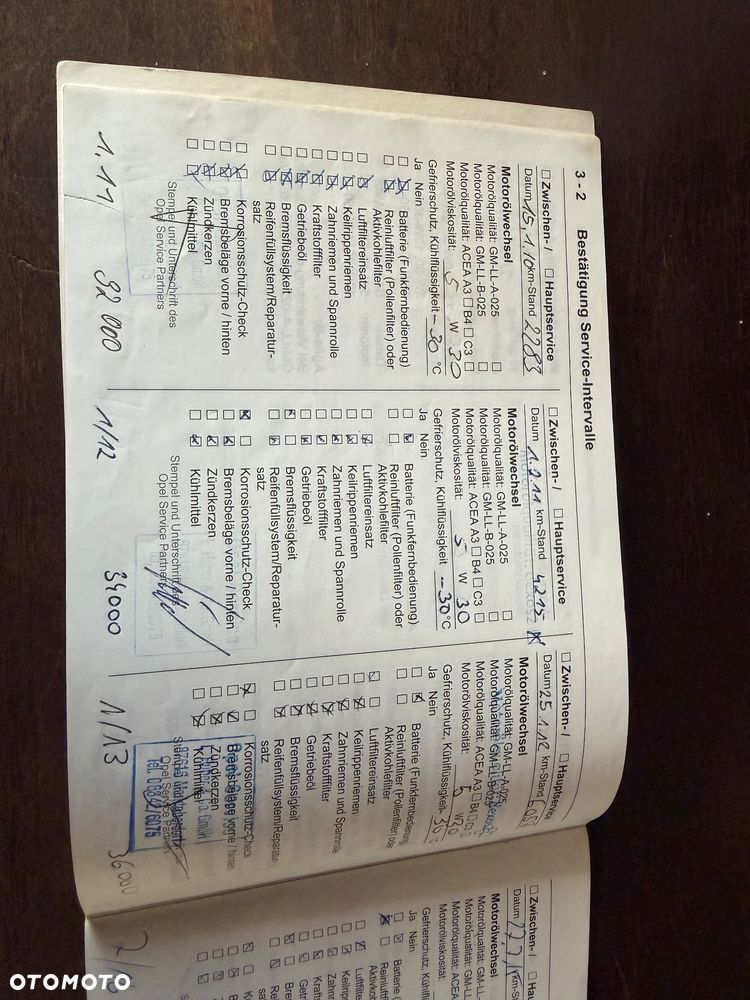 3 - 2 Bestätigung Service-Intervalle
☐ Zwischen- / ☐ Hauptservice
Datum 15.1.10 km-Stand 2283
Motorölwechsel
Motorölqualität: GM-LL-A-025 ☐
Motorölqualität: GM-LL-B-025 ☐
Motorölqualität: ACEA A3 ☐ B4 ☐ C3 ☐
Motorölviskosität: 5 W 30
Gefrierschutz, Kühlflüssigkeit -30 °C
Ja Nein
Batterie (Funkfernbedienung)
Reinluftfilter (Pollenfilter) oder
Aktivkohlefilter
Luftfiltereinsatz
Keilrippenriemen
Zahnriemen und Spannrolle
Kraftstofffilter
Getriebeöl
Bremsflüssigkeit
Reifenfüllsystem/Reparatur-
satz
Korrosionsschutz-Check
Bremsbeläge vorne / hinten
Zündkerzen
Kühlmittel
Stempel und Unterschrift des
Opel Service Partners
1.11 32 000
☐ Zwischen- / ☐ Hauptservice
Datum 1.2.11 km-Stand 4215
Motorölwechsel
Motorölqualität: GM-LL-A-025 ☐
Motorölqualität: GM-LL-B-025 ☐
Motorölqualität: ACEA A3 ☐ B4 ☐ C3 ☐
Motorölviskosität: 5 W 30
Gefrierschutz, Kühlflüssigkeit -30 °C
Ja Nein
Batterie (Funkfernbedienung)
Reinluftfilter (Pollenfilter) oder
Aktivkohlefilter
Luftfiltereinsatz
Keilrippenriemen
Zahnriemen und Spannrolle
Kraftstofffilter
Getriebeöl
Bremsflüssigkeit
Reifenfüllsystem/Reparatur-
satz
Korrosionsschutz-Check
Bremsbeläge vorne / hinten
Zündkerzen
Kühlmittel
Stempel und Unterschrift des
Opel Service Partners
1/12 34000
☐ Zwischen- / ☐ Hauptservice
Datum 25.1.12 km-Stand
Motorölwechsel
Motorölqualität: GM-LL-A-025
Motorölqualität: GM-LL-B-025
Motorölqualität: ACEA A3 ☐ B4 ☐ C3 ☐
Motorölviskosität: 5 W 30
Gefrierschutz, Kühlflüssigkeit 30°
Ja Nein
Batterie (Funkfernbedienung)
Reinluftfilter (Pollenfilter) oder
Aktivkohlefilter
Luftfiltereinsatz
Keilrippenriemen
Zahnriemen und Spannrolle
Kraftstofffilter
Getriebeöl
Bremsflüssigkeit
Reifenfüllsystem/Reparatur-
satz
Korrosionsschutz-Check
Bremsbeläge vorne / hinten
Zündkerzen
Kühlmittel
Opel Service Partners
1/13 36000
☐ Zwischen- / ☐
Datum
Motorölwechsel
Motorölqualität: GM-LL-
Motorölqualität: GM-LL-
Motorölqualität: ACEA
Motorölviskosität:
Gefrierschutz, Kühlflüssigkeit
Ja Nein
OTOMOTO